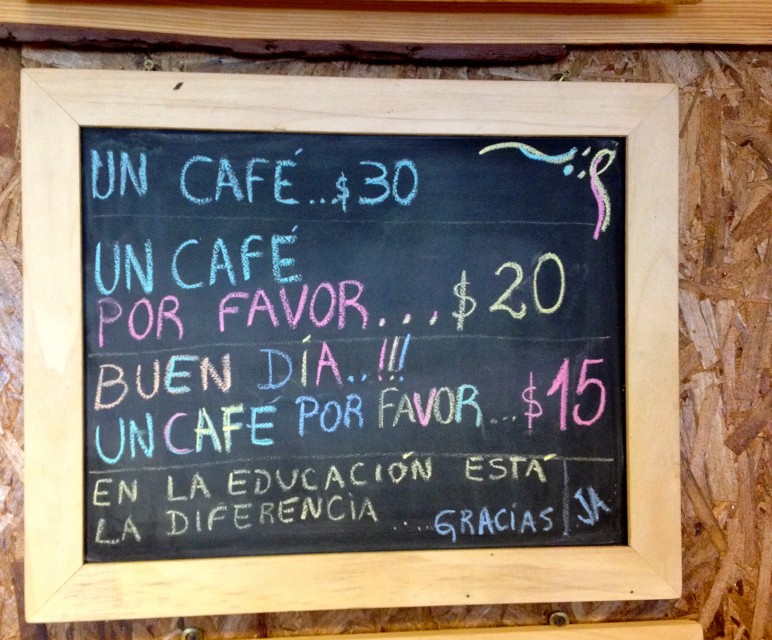 UN CAFÉ...$30
UN CAFÉ
POR FAVOR....$20
BUEN DÍA..!!!
UN CAFÉ POR FAVOR...$15
EN LA EDUCACIÓN ESTÁ
LA DIFERENCIA ....GRACIAS JA